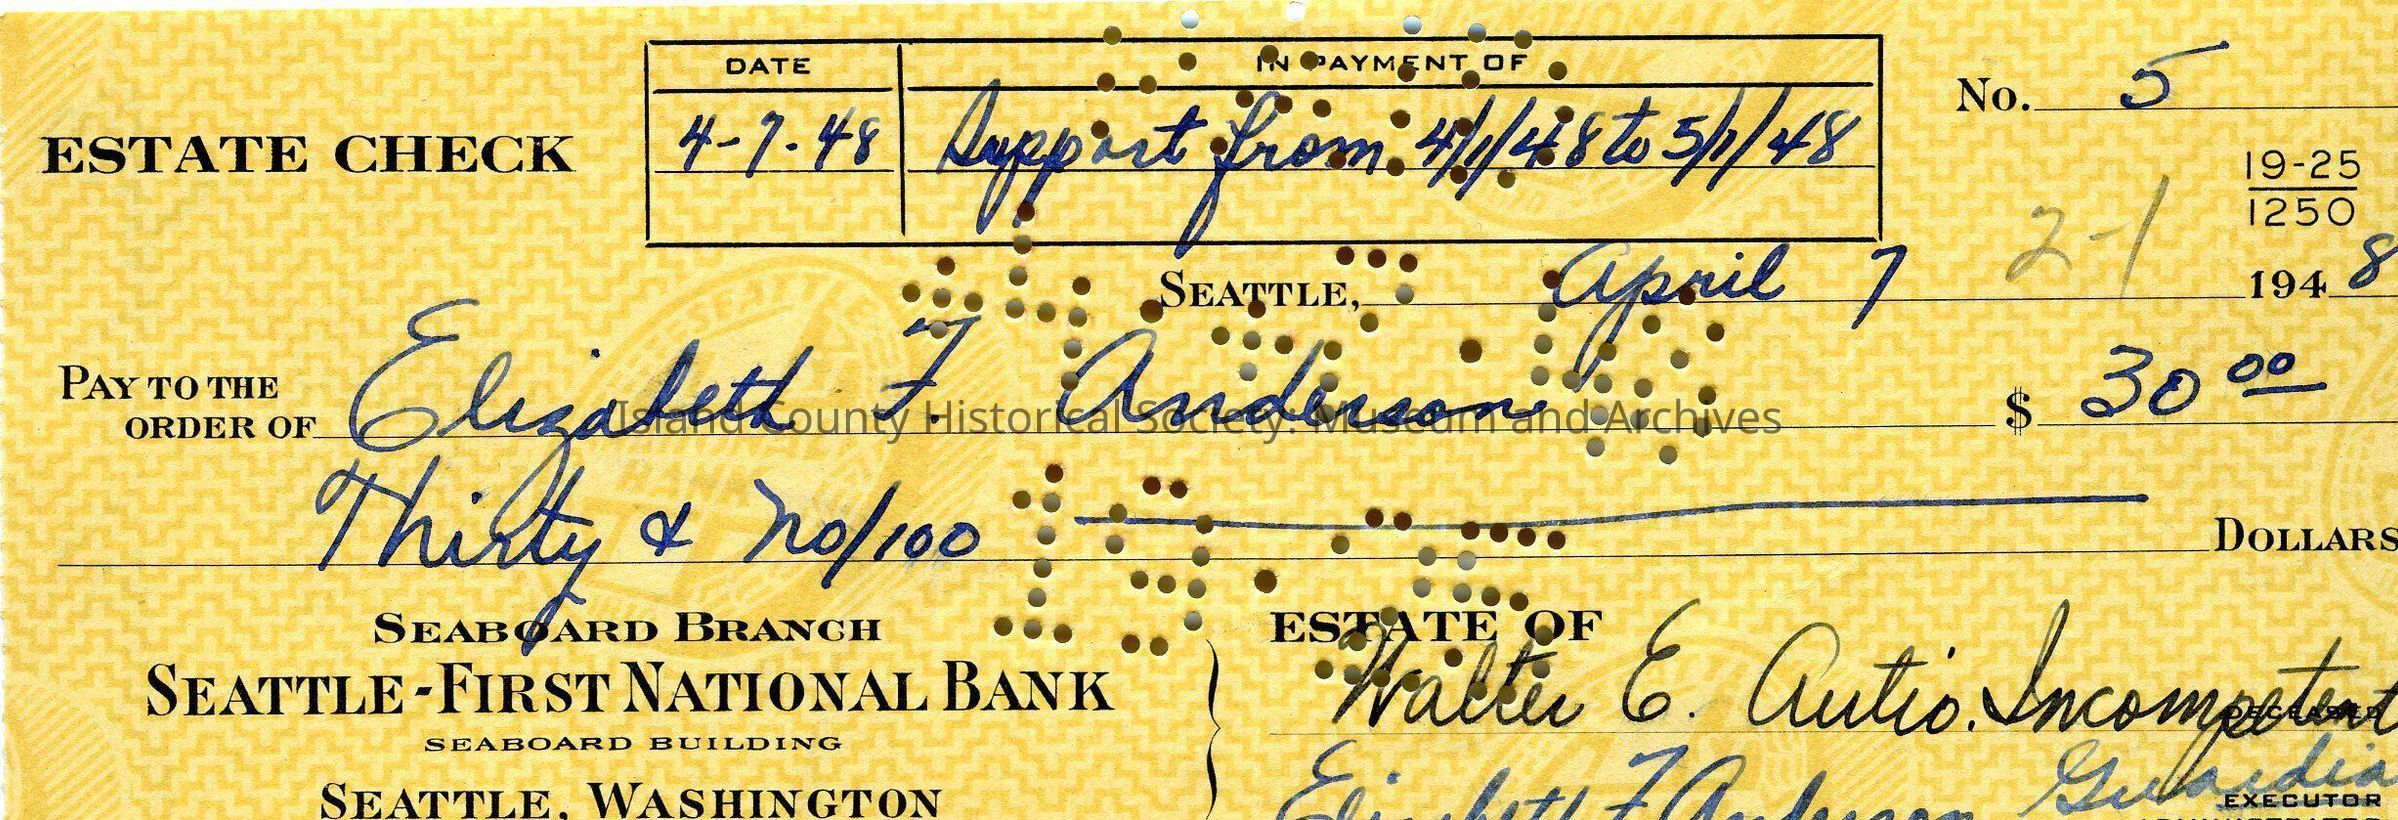 DATE
IN PAYMENT OF
No. 5
ESTATE CHECK
4-7-48
Support from 4/1/48 to 5/1/48
19-25
1250
2-1
SEATTLE, April 7 1948
PAY TO THE
ORDER OF Elizabeth F. Anderson $ 30 00
Island County Historical Society: Museum and Archives
Thirty & no/100 DOLLARS
SEABOARD BRANCH
ESTATE OF
SEATTLE-FIRST NATIONAL BANK
Walter E. Autio. Incompetent
DECEASED
SEABOARD BUILDING
SEATTLE, WASHINGTON
Elizabeth F Anderson Guardia
EXECUTOR